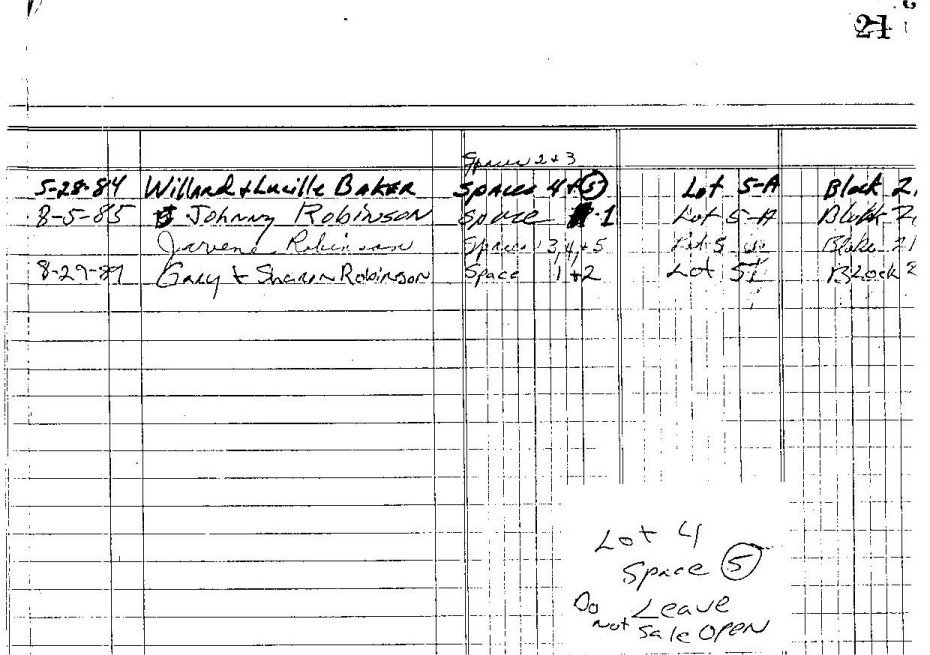 21
Spaces 2+3
5-28-84 Willard + Lucille BAKER Spaces 4+5 Lot 5-A Block 2
8-5-85 Johnny Robinson Space 1 Lot 5-A Block 2
Robinson Spaces 3,4,+5 Lot 5 Block 21
8-29-89 Gary + Sharon Robinson Space 1+2 Lot 5 BLock 2
Lot 4
Space 5
Do Leave
not Sale OPEN